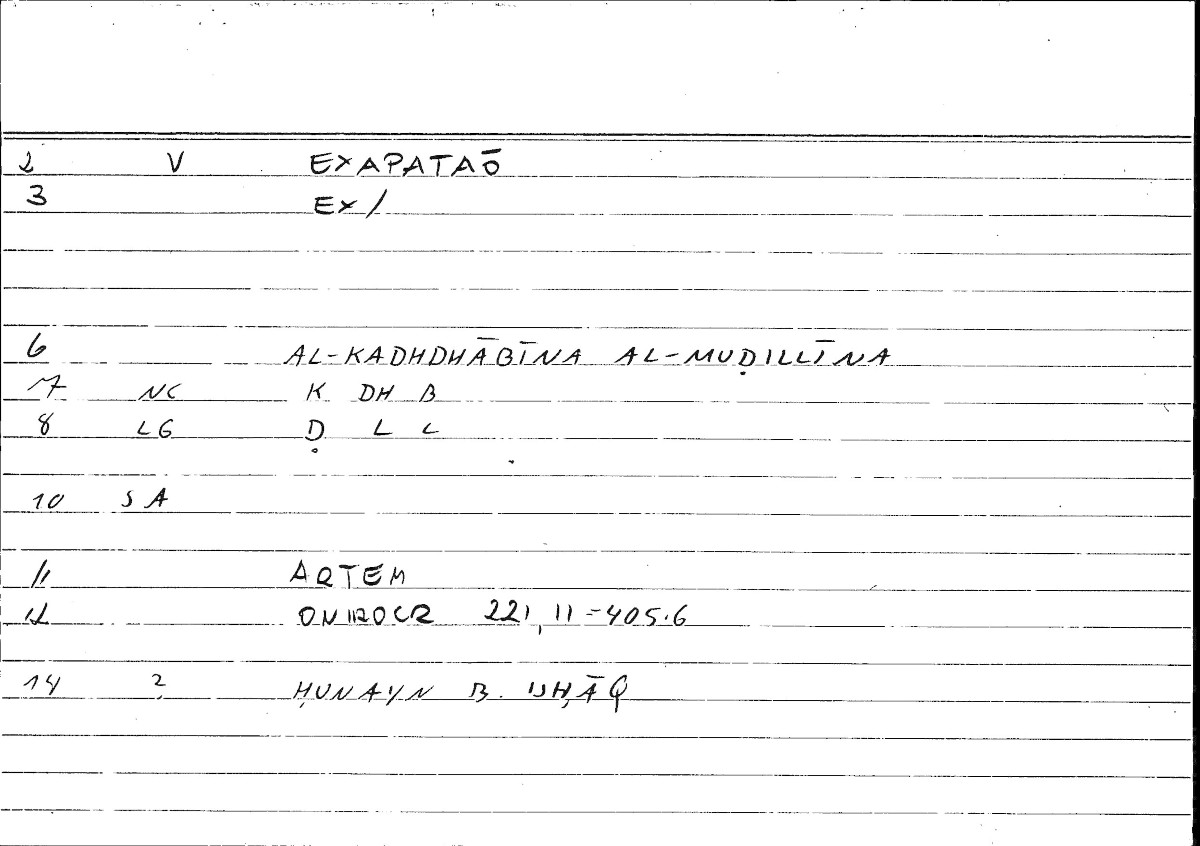 2 V EXAPATAŌ
3 EX/
6 AL-KADHDHĀBĪNA AL-MUḌILLĪNA
7 NC K DH B
8 LG Ḍ L L
10 SA
11 ARTEM
12 ONIROCR 221,11=405.6
14 2 ḤUNAYN B. ISḤĀQ